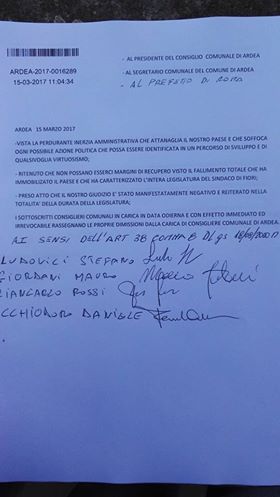 - AL PRESIDENTE DEL CONSIGLIO COMUNALE DI ARDEA
ARDEA-2017-0016289
- AL SEGRETARIO COMUNALE DEL COMUNE DI ARDEA
15-03-2017 11:04:34
- AL PREFETTO DI ROMA
ARDEA 15 MARZO 2017
- VISTA LA PERDURANTE INERZIA AMMINISTRATIVA CHE ATTANAGLIA IL NOSTRO PAESE E CHE SOFFOCA
OGNI POSSIBILE AZIONE POLITICA CHE POSSA ESSERE IDENTIFICATA IN UN PERCORSO DI SVILUPPO E DI
QUALSIVOGLIA VIRTUOSISMO;
- RITENUTO CHE NON POSSANO ESSERCI MARGINI DI RECUPERO VISTO IL FALLIMENTO TOTALE CHE HA
IMMOBILIZATO IL PAESE E CHE HA CARATTERIZZATO L'INTERA LEGISLATURA DEL SINDACO DI FIORI;
- PRESO ATTO CHE IL NOSTRO GIUDIZIO E' STATO MANIFESTAMENTE NEGATIVO E REITERATO NELLA
TOTALITA' DELLA DURATA DELLA LEGISLATURA;
I SOTTOSCRITTI CONSIGLIERI COMUNALI IN CARICA IN DATA ODIERNA E CON EFFETTO IMMEDIATO ED
IRREVOCABILE RASSEGNANO LE PROPRIE DIMISSIONI DALLA CARICA DI CONSIGLIERE COMUNALE DI ARDEA.
AI SENSI DELL'ART 38 COMMA 8 DLgs
LUDOVICI STEFANO
GIORDANI MAURO
GIANCARLO ROSSI
DANIELE